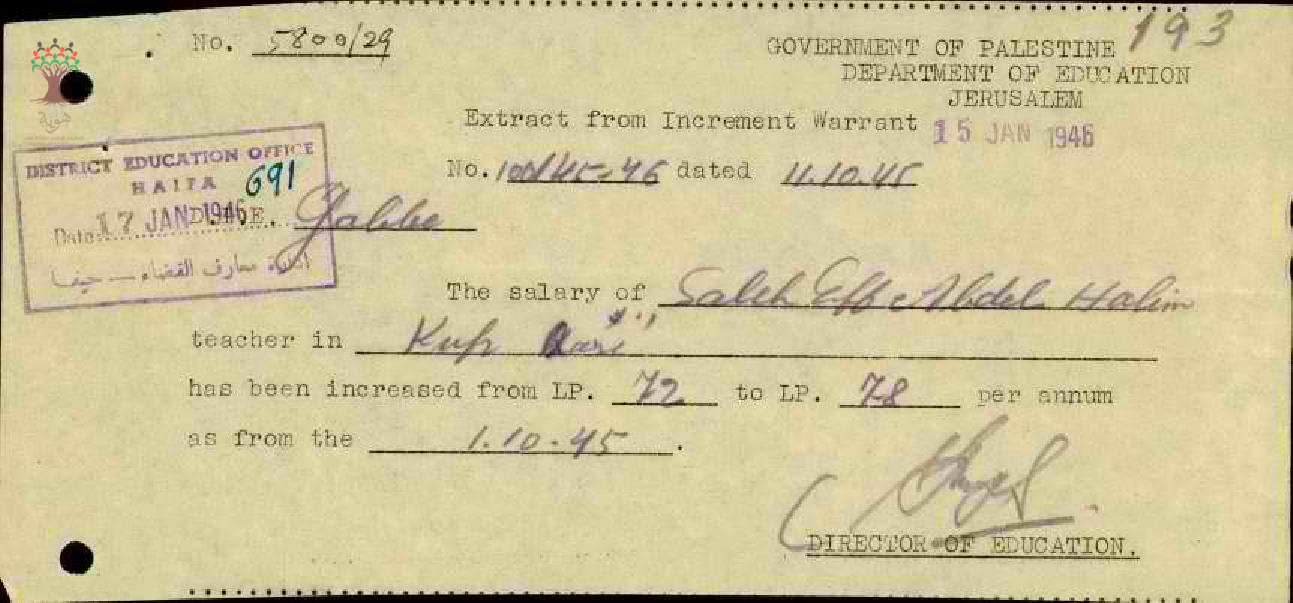 193
No. 5800/29
GOVERNMENT OF PALESTINE
DEPARTMENT OF EDUCATION
JERUSALEM
Extract from Increment Warrant
15 JAN 1946
No. 100/45-46 dated 11.10.45
DISTRICT EDUCATION OFFICE
HAIFA 691
Date: 17 JAN 1946
إدارة معارف القضاء — حيفا
D.I.E. Galilee
The salary of Saleh Eff. Abdel Halim
teacher in Kufr
has been increased from LP. 72 to LP. 78 per annum
as from the 1.10.45.
DIRECTOR OF EDUCATION.
هوية